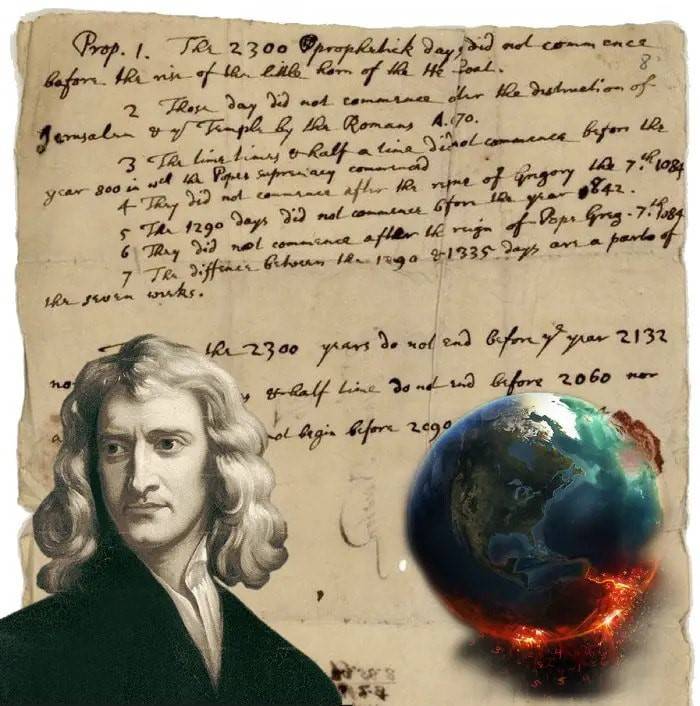 Prop. 1. The 2300 prophetick days did not commence
before the rise of the little horn of the He Goat.
8
2 Those day did not commence after the destruction of
Jerusalem & ye Temple by the Romans A. 70.
3 The time times & half a time did not commence before the
year 800 in wch the Popes supremacy commenced
4 They did not commence after the reigne of Gregory the 7.th 1084
5 The 1290 days did not commence before the year 842.
6 They did not commence after the reign of Pope Greg. 7.th 1084
7 The diffence between the 1290 & 1335 days are a parts of
the seven weeks.
the 2300 years do not end before ye year 2132
& half time do not end before 2060 nor
begin before 2090